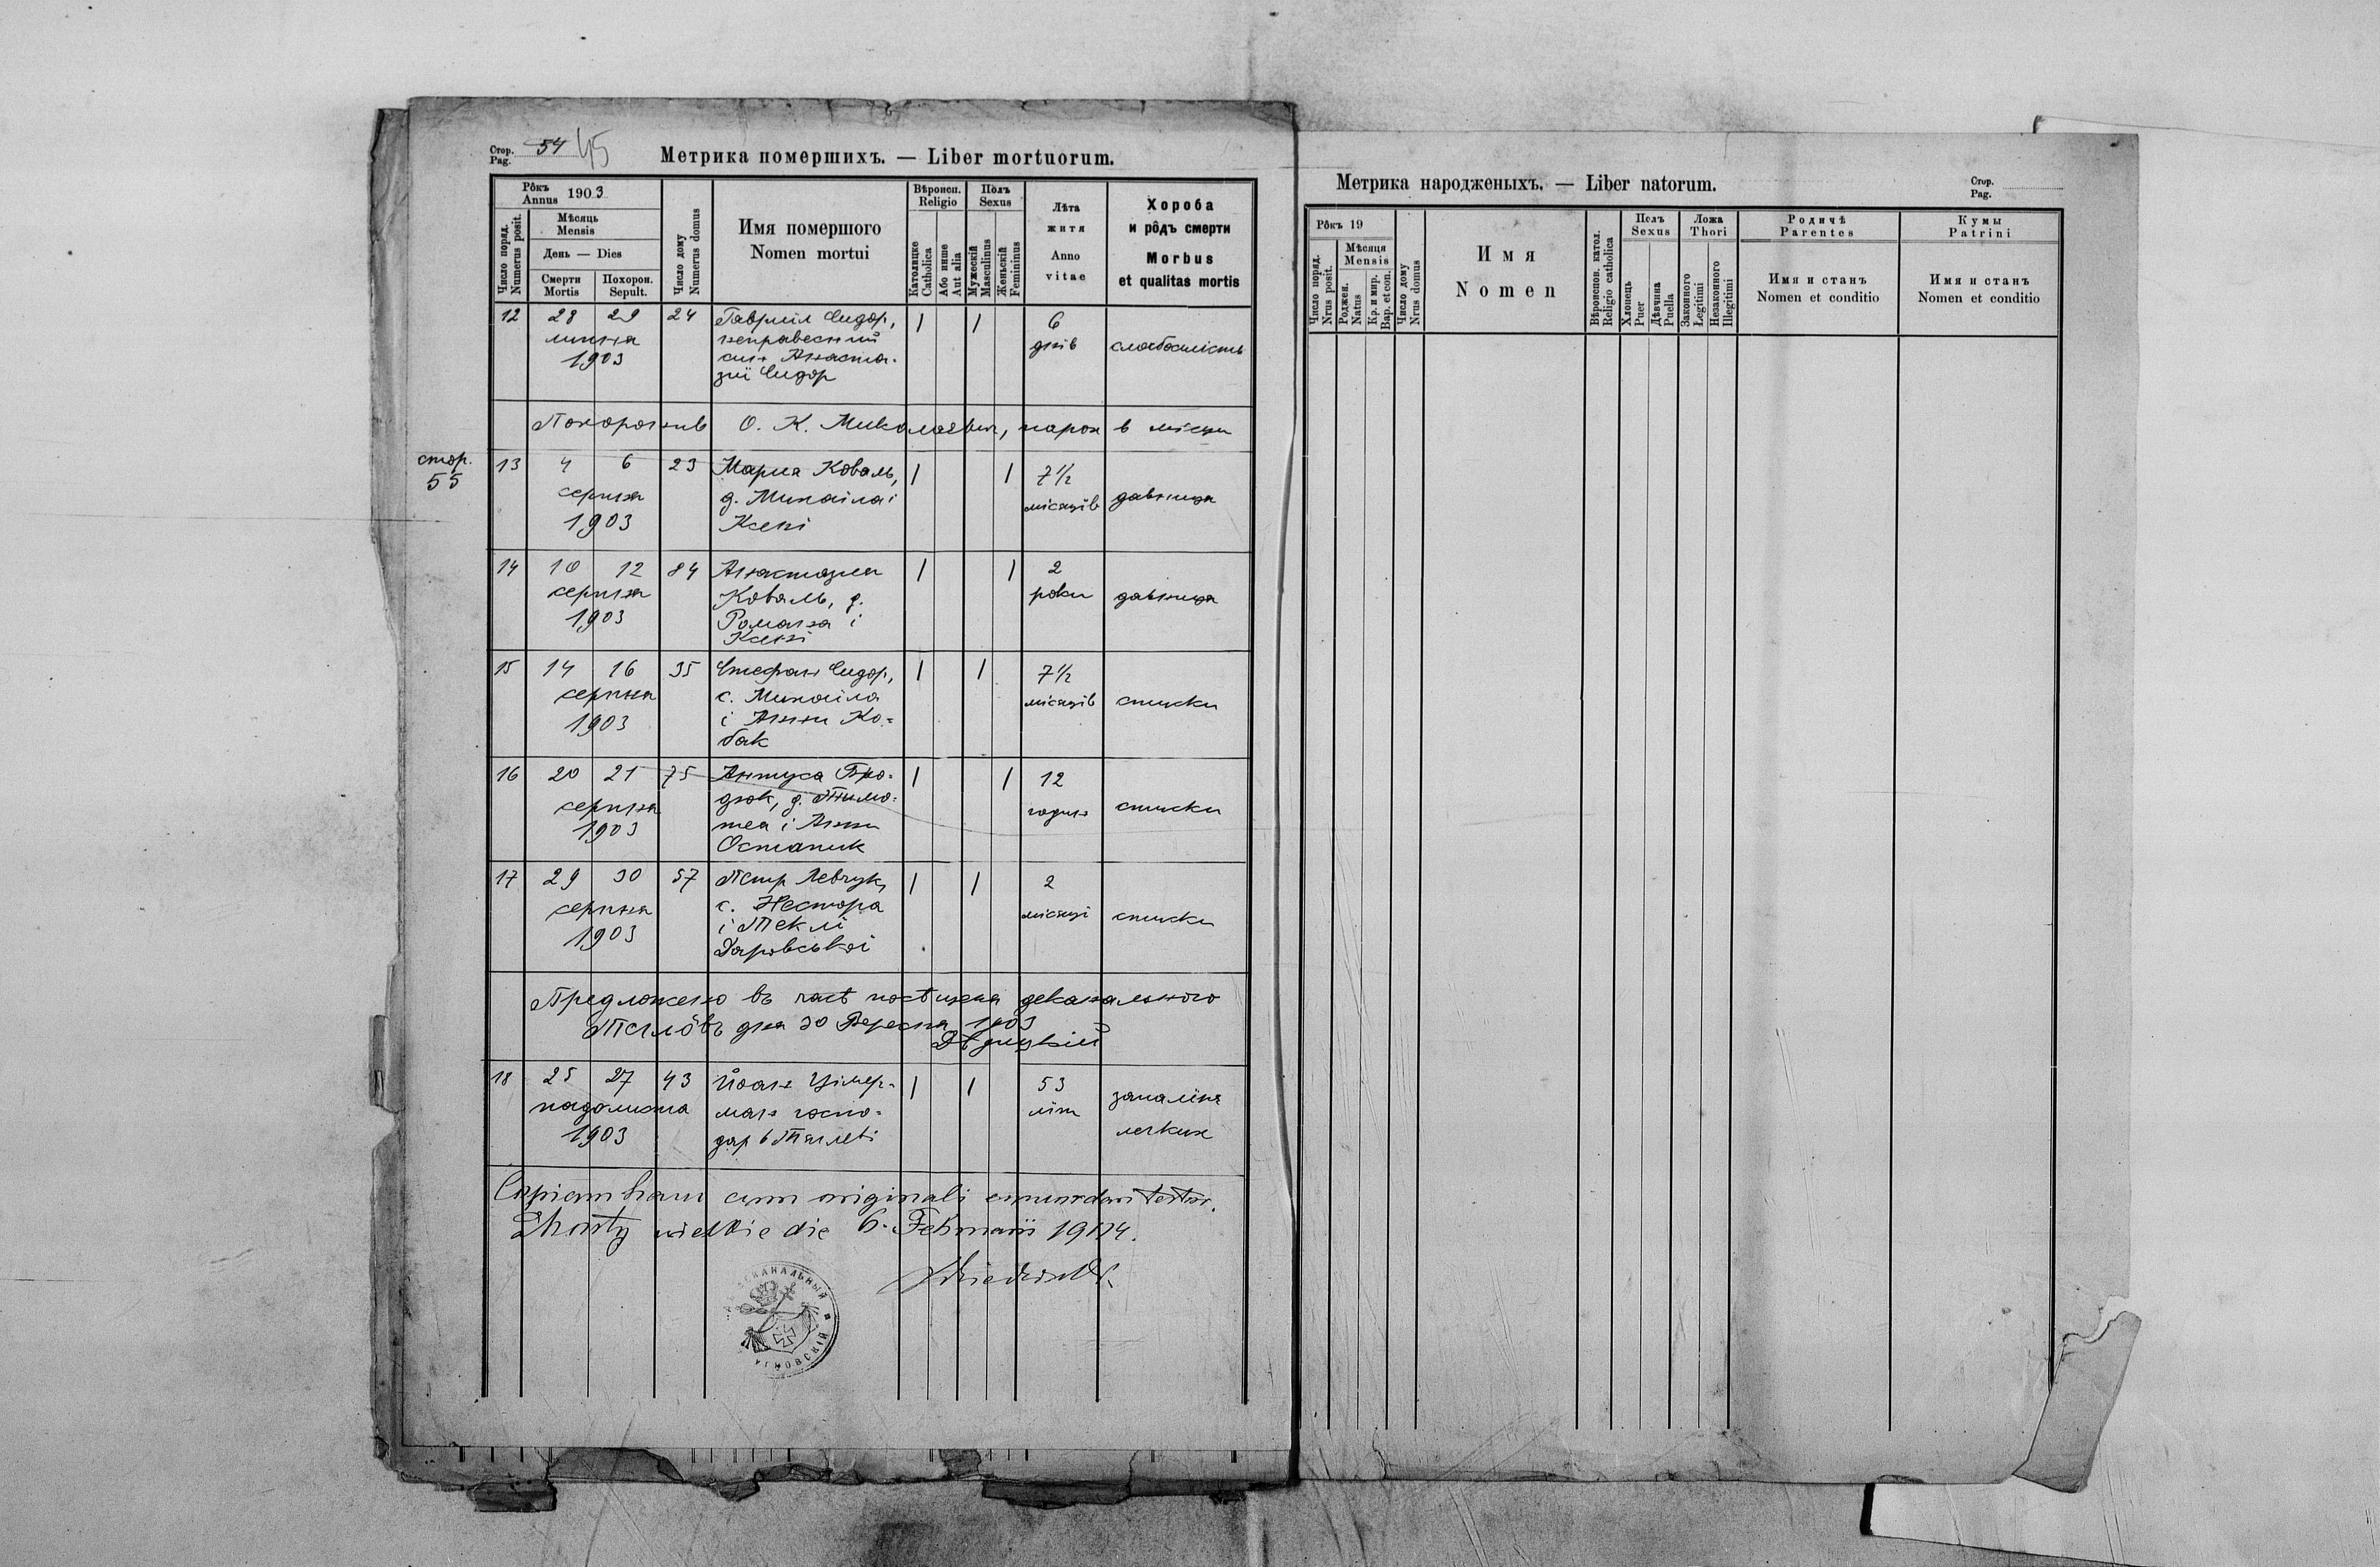 Стор. Pag. 54 45
Метрика помершихъ. — Liber mortuorum.
Рôкъ Annus 1903
Число поряд. Numerus posit.
Мѣсяць Mensis
День — Dies
Смерти Mortis
Похорон. Sepult.
Число дому Numerus domus
Имя помершого
Nomen mortui
Вѣроисп. Religio
Католицке Catholica
Або инше Aut alia
Полъ Sexus
Мужескій Masculinus
Женьскій Femininus
Лѣта житя
Anno vitae
Хороба и рôдъ смерти
Morbus et qualitas mortis
12 28 29 24 Гавриїл Сидор, | | 6
липня неправесний днів слабосилість
1903 син Анаста-
зиї Сидор
Похоронив О. К. Миколаєвич, парох в місци
стор.
55
13 4 6 23 Мария Коваль, | | 7½
серпня д. Михаіла і місяців давниця
1903 Ксені
14 10 12 84 Анастазия | | 2
серпня Коваль, д. роки давниця
1903 Романа і
Ксені
15 14 16 35 Стефан Сидор, | | 7½
серпня с. Михаіла місяців списки
1903 і Анни Ко-
бак
16 20 21 75 Аннуса | | 12
серпня д. Тимо- годин списки
1903 тея і Анни
Остапик
17 29 30 57 Петр Левчук, | | 2
серпня с. Нестора місяці списки
1903 і Теклі
Даровської
Предложено въ часѣ посѣщенія деканального
Тяглôвъ дня 30 Вересня 1903
Дѣдицкій
18 25 27 43 Йоан Цімер- | | 53 запаліня
падолиста ман госпо- літ легких
1903 дар в Тяглеві
Copiam hanc cum originali concordare testor.
Chorty wielkie die 6. Februarii 1904.
ДЕКАНАЛЬНЫЙ
УГНОВСКІЙ
Метрика народженыхъ. — Liber natorum.
Стор. Pag.
Рôкъ 19
Число поряд. Nrus posit.
Мѣсяця Mensis
Роджен. Natus
Кр. и мир. Bap. et con.
Число дому Nrus domus
Имя
Nomen
Вѣроиспов. катол. Religio catholica
Полъ Sexus
Хлопець Puer
Дѣвчина Puella
Ложа Thori
Законного Legitimi
Незаконного Illegitimi
Родичѣ
Parentes
Имя и станъ
Nomen et conditio
Кумы
Patrini
Имя и станъ
Nomen et conditio